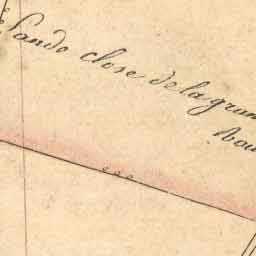 Lande close de la gran